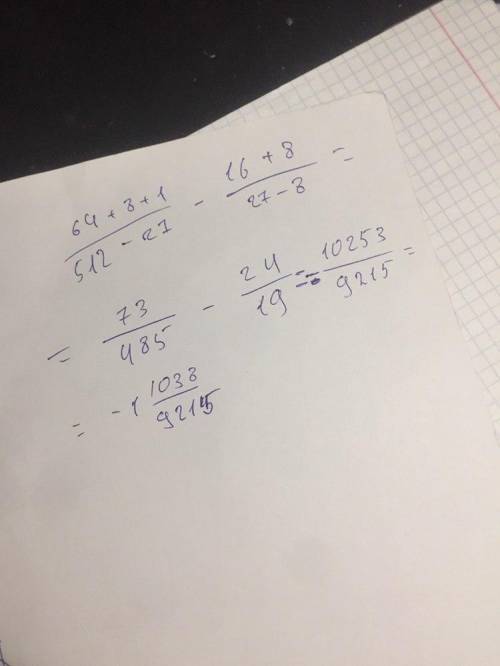 64 + 8 + 1 / 512 - 27 - 16 + 8 / 27 - 8 =
= 73 / 485 - 24 / 19 = - 10253 / 9215 =
= - 1 1038 / 9215